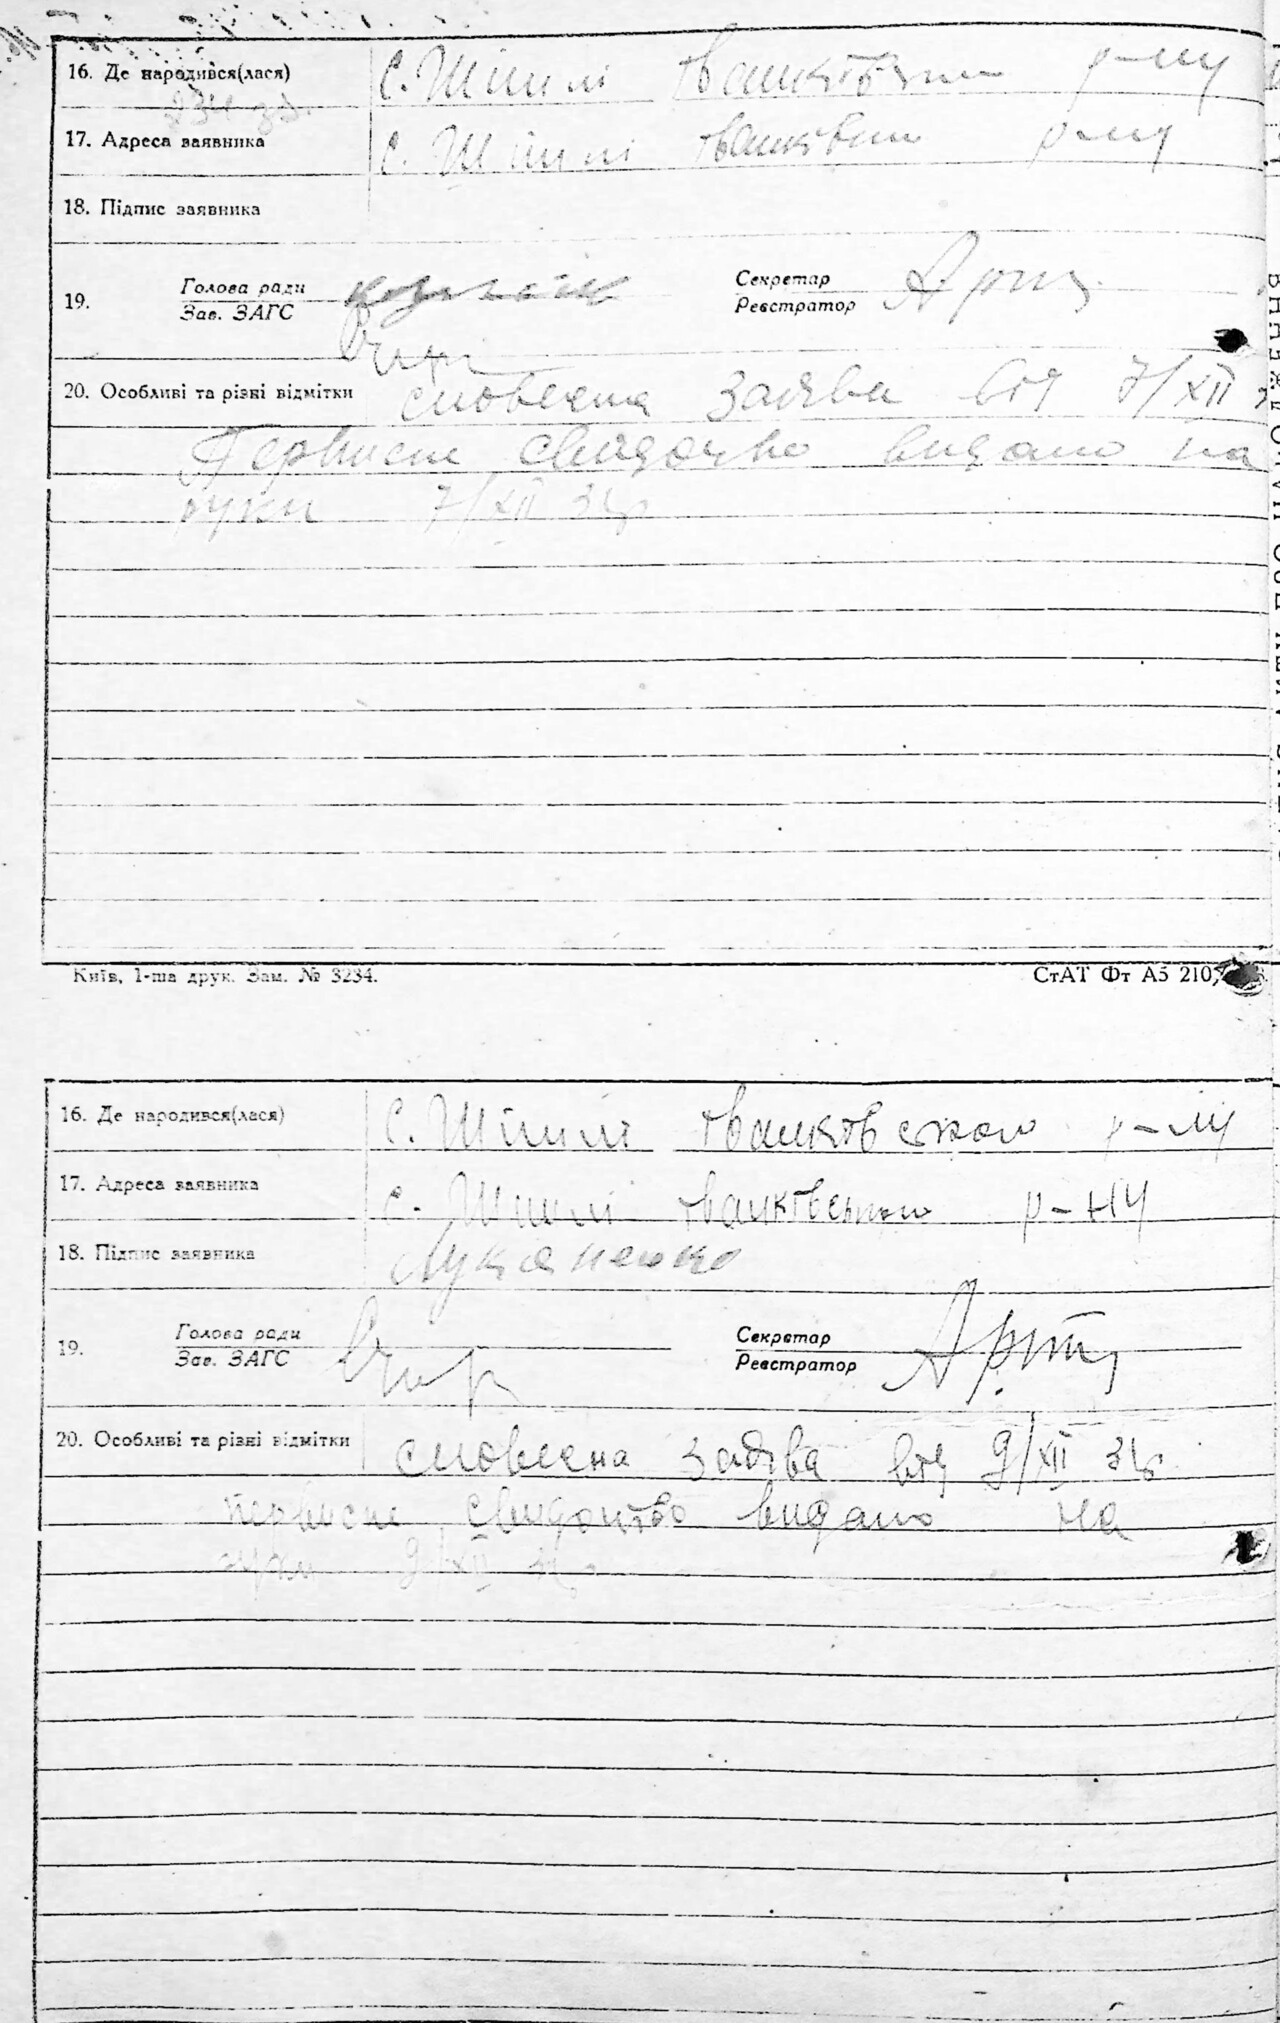 16. Де народився(лася) С. Шпилі Іванківськом р-ну
17. Адреса заявника С. Шпилі Іванківськом р-ну
18. Підпис заявника
19. Голова ради Секретар
Зав. ЗАГС Реєстратор
20. Особливі та різні відмітки словесна заява від 7/XII
Первисне свидоцтво видано на
руки 7/XII 34р
Київ, 1-ша друк. Зам. № 3234. СтАТ Фт А5 210
16. Де народився(лася) С. Шпилі Іванківськом р-ну
17. Адреса заявника С. Шпилі Іванківськом р-ну
18. Підпис заявника Лукяненко
19. Голова ради Секретар
Зав. ЗАГС Реєстратор
20. Особливі та різні відмітки словесна заява від 9/XII 34р
первисне свидоцтво видано на
руки 9/XII 34р